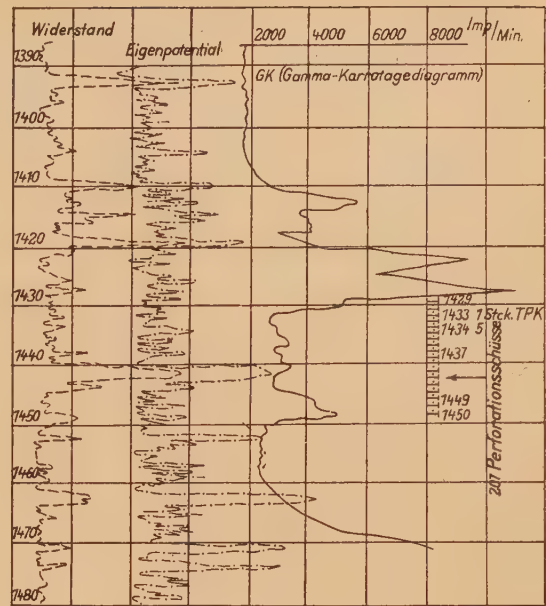 Widerstand
Eigenpotential
2000 4000 6000 8000 Imp/Min.
GK (Gamma-Karrotagediagramm)
1390
1400
1410
1420
1430
1440
1450
1460
1470
1480
1429
1433 1 Stck. TPK
1434 5
1437
1449
1450
207 Perforationsschüsse